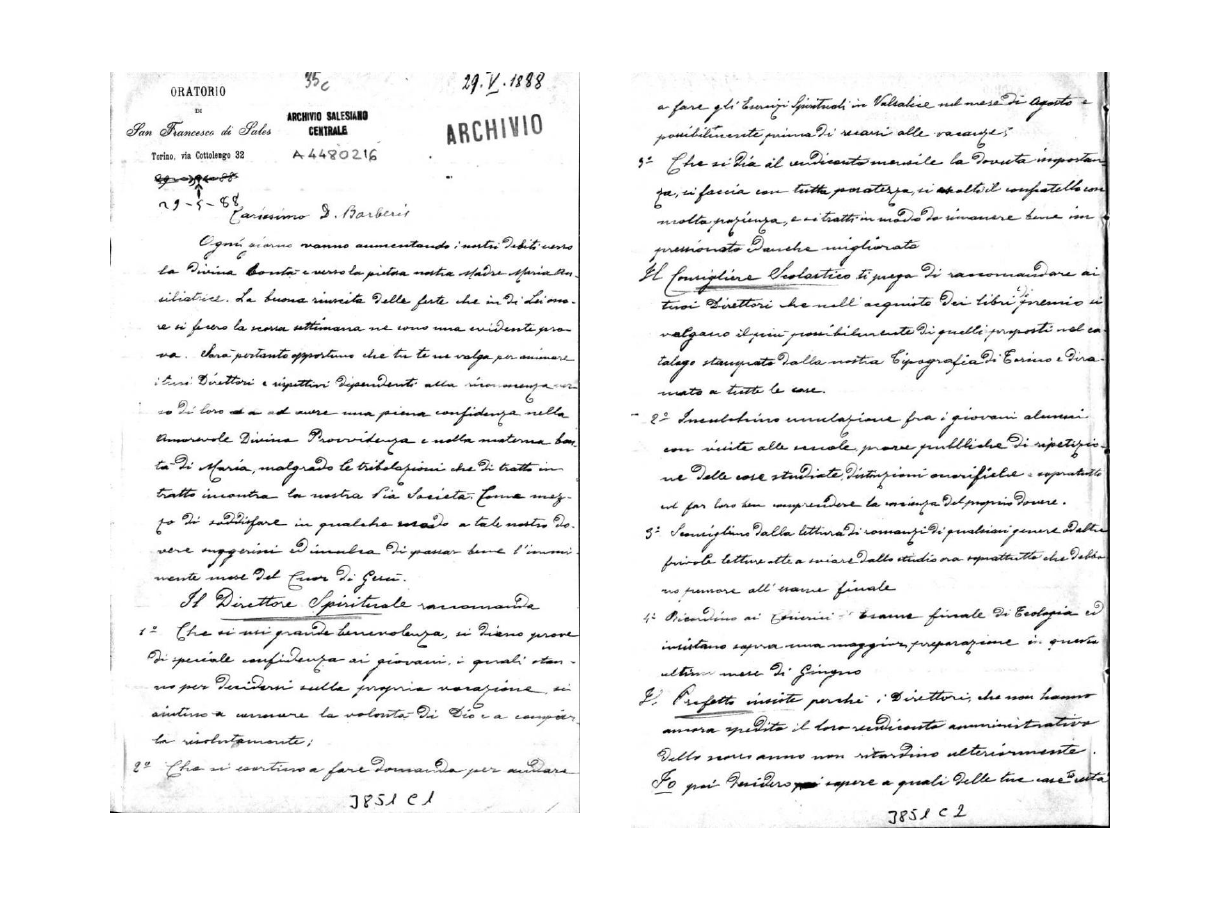 35c
29.V.1888
ORATORIO
DI
San Francesco di Sales
Torino, via Cottolengo 32
ARCHIVIO SALESIANO
CENTRALE
A4480216
ARCHIVIO
29-5-88
Carissimo D. Barberis
Ogni giorno vanno aumentando i nostri debiti verso
la Divina bontà e verso la pietosa nostra Madre Maria Au-
siliatrice. La buona riuscita delle feste che in di Lei ono-
re si fecero la scorsa settimana ne sono una evidente pro-
va. Sarà pertanto opportuno che tu te ne valga per animare
i tuoi Direttori e rispettivi dipendenti alla riconoscenza ver-
so di loro ed ad avere una piena confidenza nella
Amorevole Divina Provvidenza e nella materna bon-
tà di Maria, malgrado le tribolazioni che di tratto in
tratto incontra la nostra Pia Società. Come mez-
zo di soddisfare in qualche modo a tale nostro do-
vere suggerisci ed inculca di passar bene l'immi-
nente mese del Cuor di Gesù.
Il Direttore Spirituale raccomanda
1º Che si usi grande benevolenza, si diano prove
di speciale confidenza ai giovani, i quali stan-
no per decidersi sulla propria vocazione, si
aiutino a conoscere la volontà di Dio e a compier-
la risolutamente;
2º Che si esortino a fare domanda per andare
J851 C1
a fare gli Esercizi Spirituali in Valsalice nel mese di Agosto e
possibilmente prima di recarsi alle vacanze;
3º Che si dia al rendiconto mensile la dovuta importan-
za, si faccia con tutta posatezza, si ascolti il confratello con
molta pazienza, e si tratti in modo da rimanere bene im
pressionato ed anche migliorato
Il Consigliere Scolastico ti prega di raccomandare ai
tuoi Direttori che nell'acquisto dei libri di premio si
valgano il più possibilmente di quelli proposti nel ca-
talogo stampato dalla nostra Tipografia di Torino e dira-
mato a tutte le case.
2º Inculchino emulazione fra i giovani alunni
con visite alle scuole, prove pubbliche di ripetizio-
ne delle cose studiate, distinzioni onorifiche e sopratutto
col far loro ben comprendere la coscienza del proprio dovere.
3º Sconsigliino dalla lettura di romanzi di qualsiasi genere o d'altre
frivole letture atte a sviare dallo studio ora soprattutto che debbo-
no pensare all'esame finale
4º Ricordino ai Chierici l'Esame finale di Teologia ed
insistano sopra una maggior preparazione in questo
ultimo mese di Giugno
Il Prefetto insiste perchè i Direttori, che non hanno
ancora spedito il loro rendiconto amministrativo
dello scorso anno non ritardino ulteriormente.
Io poi desidero sapere a quali delle tue case
J851 C2